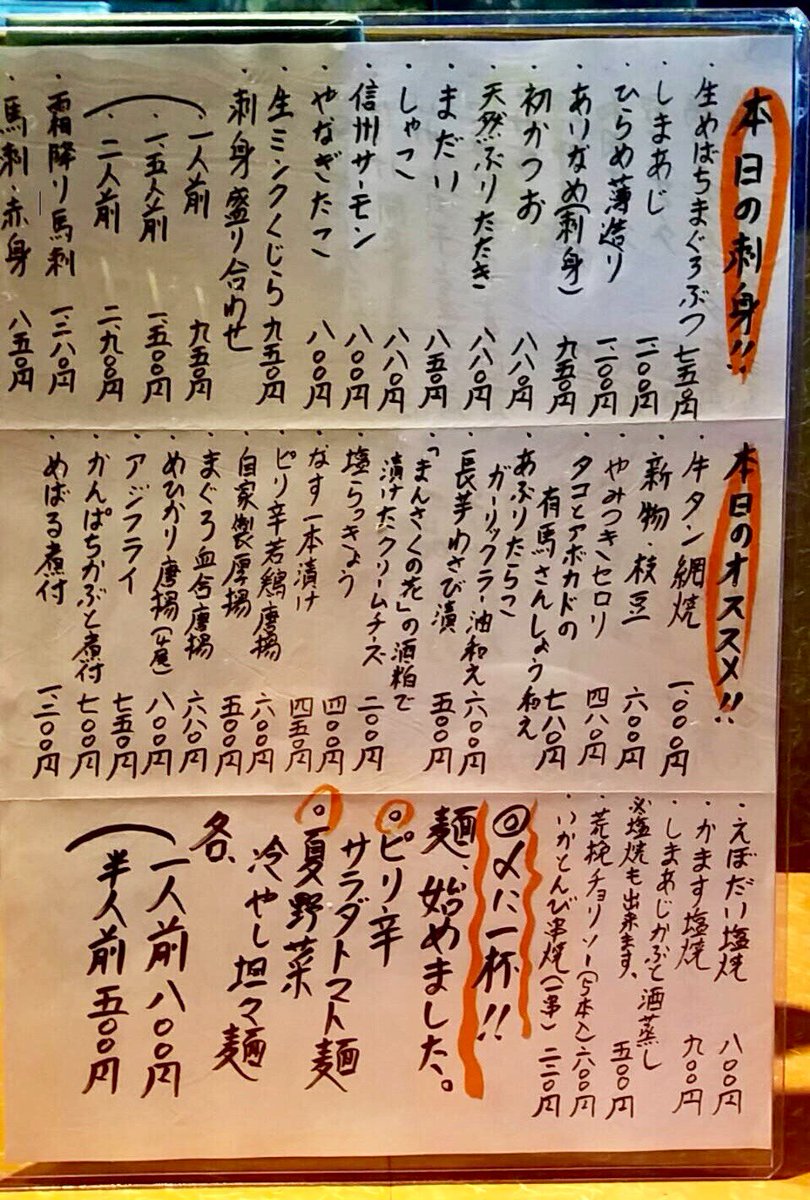 本日の刺身!!
・生めばちまぐろぶつ 七五〇円
・しまあじ 一、二〇〇円
・ひらめ薄造り 一、二〇〇円
・ありなめ(刺身) 九五〇円
・初かつお 八八〇円
・天然ぶりたたき 八八〇円
・まだい 八五〇円
・しゃこ 八八〇円
・信州サーモン 八〇〇円
・やなぎたこ 八〇〇円
・生ミンクくじら 九五〇円
・刺身盛り合わせ
・一人前 九五〇円
・一、五人前 一、五〇〇円
・二人前 二、九〇〇円
・霜降り馬刺 一、三八〇円
・馬刺・赤身 八五〇円
本日のオススメ!!
・牛タン網焼 一、〇〇〇円
・新物・枝豆 六〇〇円
・やみつきセロリ 四八〇円
・タコとアボカドの
有馬さんしょう和え 七八〇円
・あぶりたらこ
ガーリックラー油和え 六〇〇円
・長芋わさび漬 五〇〇円
・「まんさくの花」の酒粕で
漬けたクリームチーズ
・塩らっきょう 二〇〇円
・なす一本漬け 四〇〇円
・ピリ辛若鶏唐揚 四五〇円
・自家製厚揚 六〇〇円
・まぐろ血合唐揚 五〇〇円
・めひかり唐揚(4尾) 六八〇円
・アジフライ 八〇〇円
・かんぱちかぶと煮付 七五〇円
・めばる煮付 七〇〇円
一、三〇〇円
・えぼだい塩焼 八〇〇円
・かます塩焼 九〇〇円
・しまあじかぶと酒蒸し
※塩焼も出来ます。 五〇〇円
・荒挽チョリソー(5本入) 六〇〇円
・いかとんび串焼(一串) 二三〇円
◎〆に一杯!!
麺、始めました。
○ピリ辛
サラダトマト麺
○夏野菜
冷やし坦々麺
各、
一人前 八〇〇円
半人前 五〇〇円